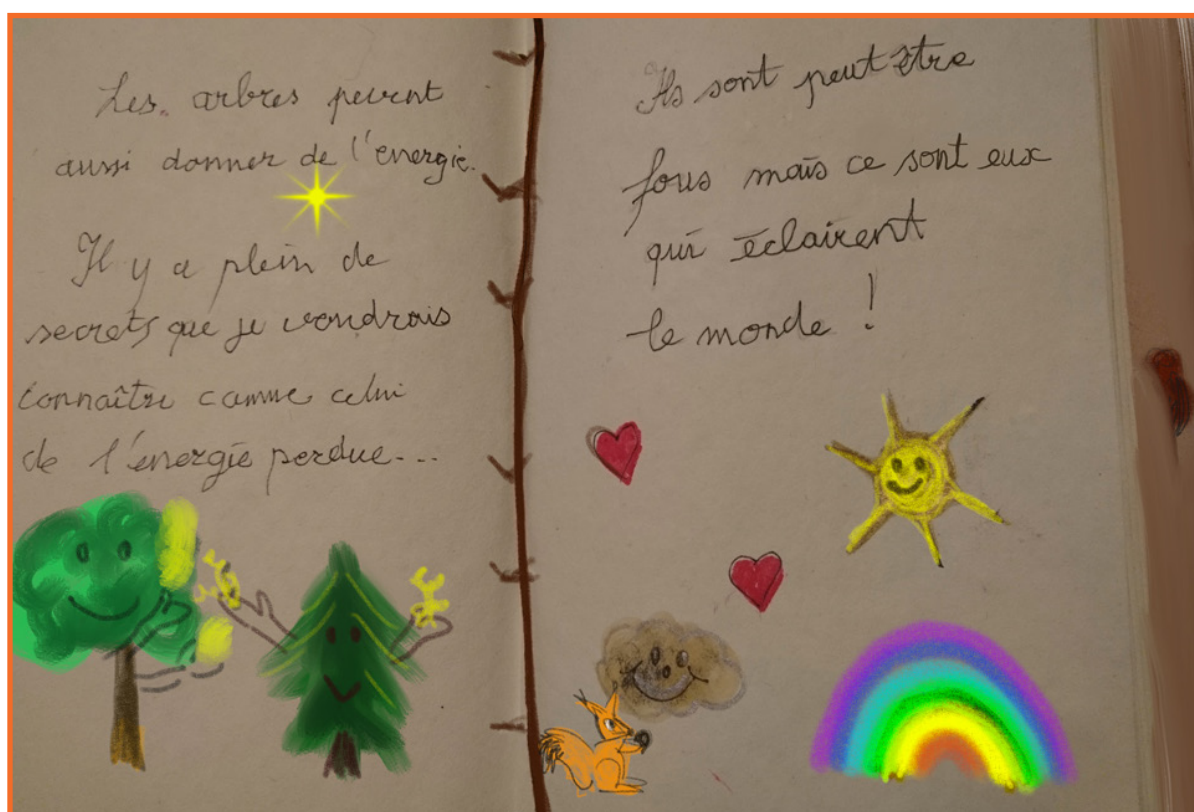 Les arbres peuvent
aussi donner de l'energie.
Il y a plein de
secrets que je voudrais
connaître comme celui
de l'énergie perdue...
Ils sont peut être
fous mais ce sont eux
qui éclairent
le monde !